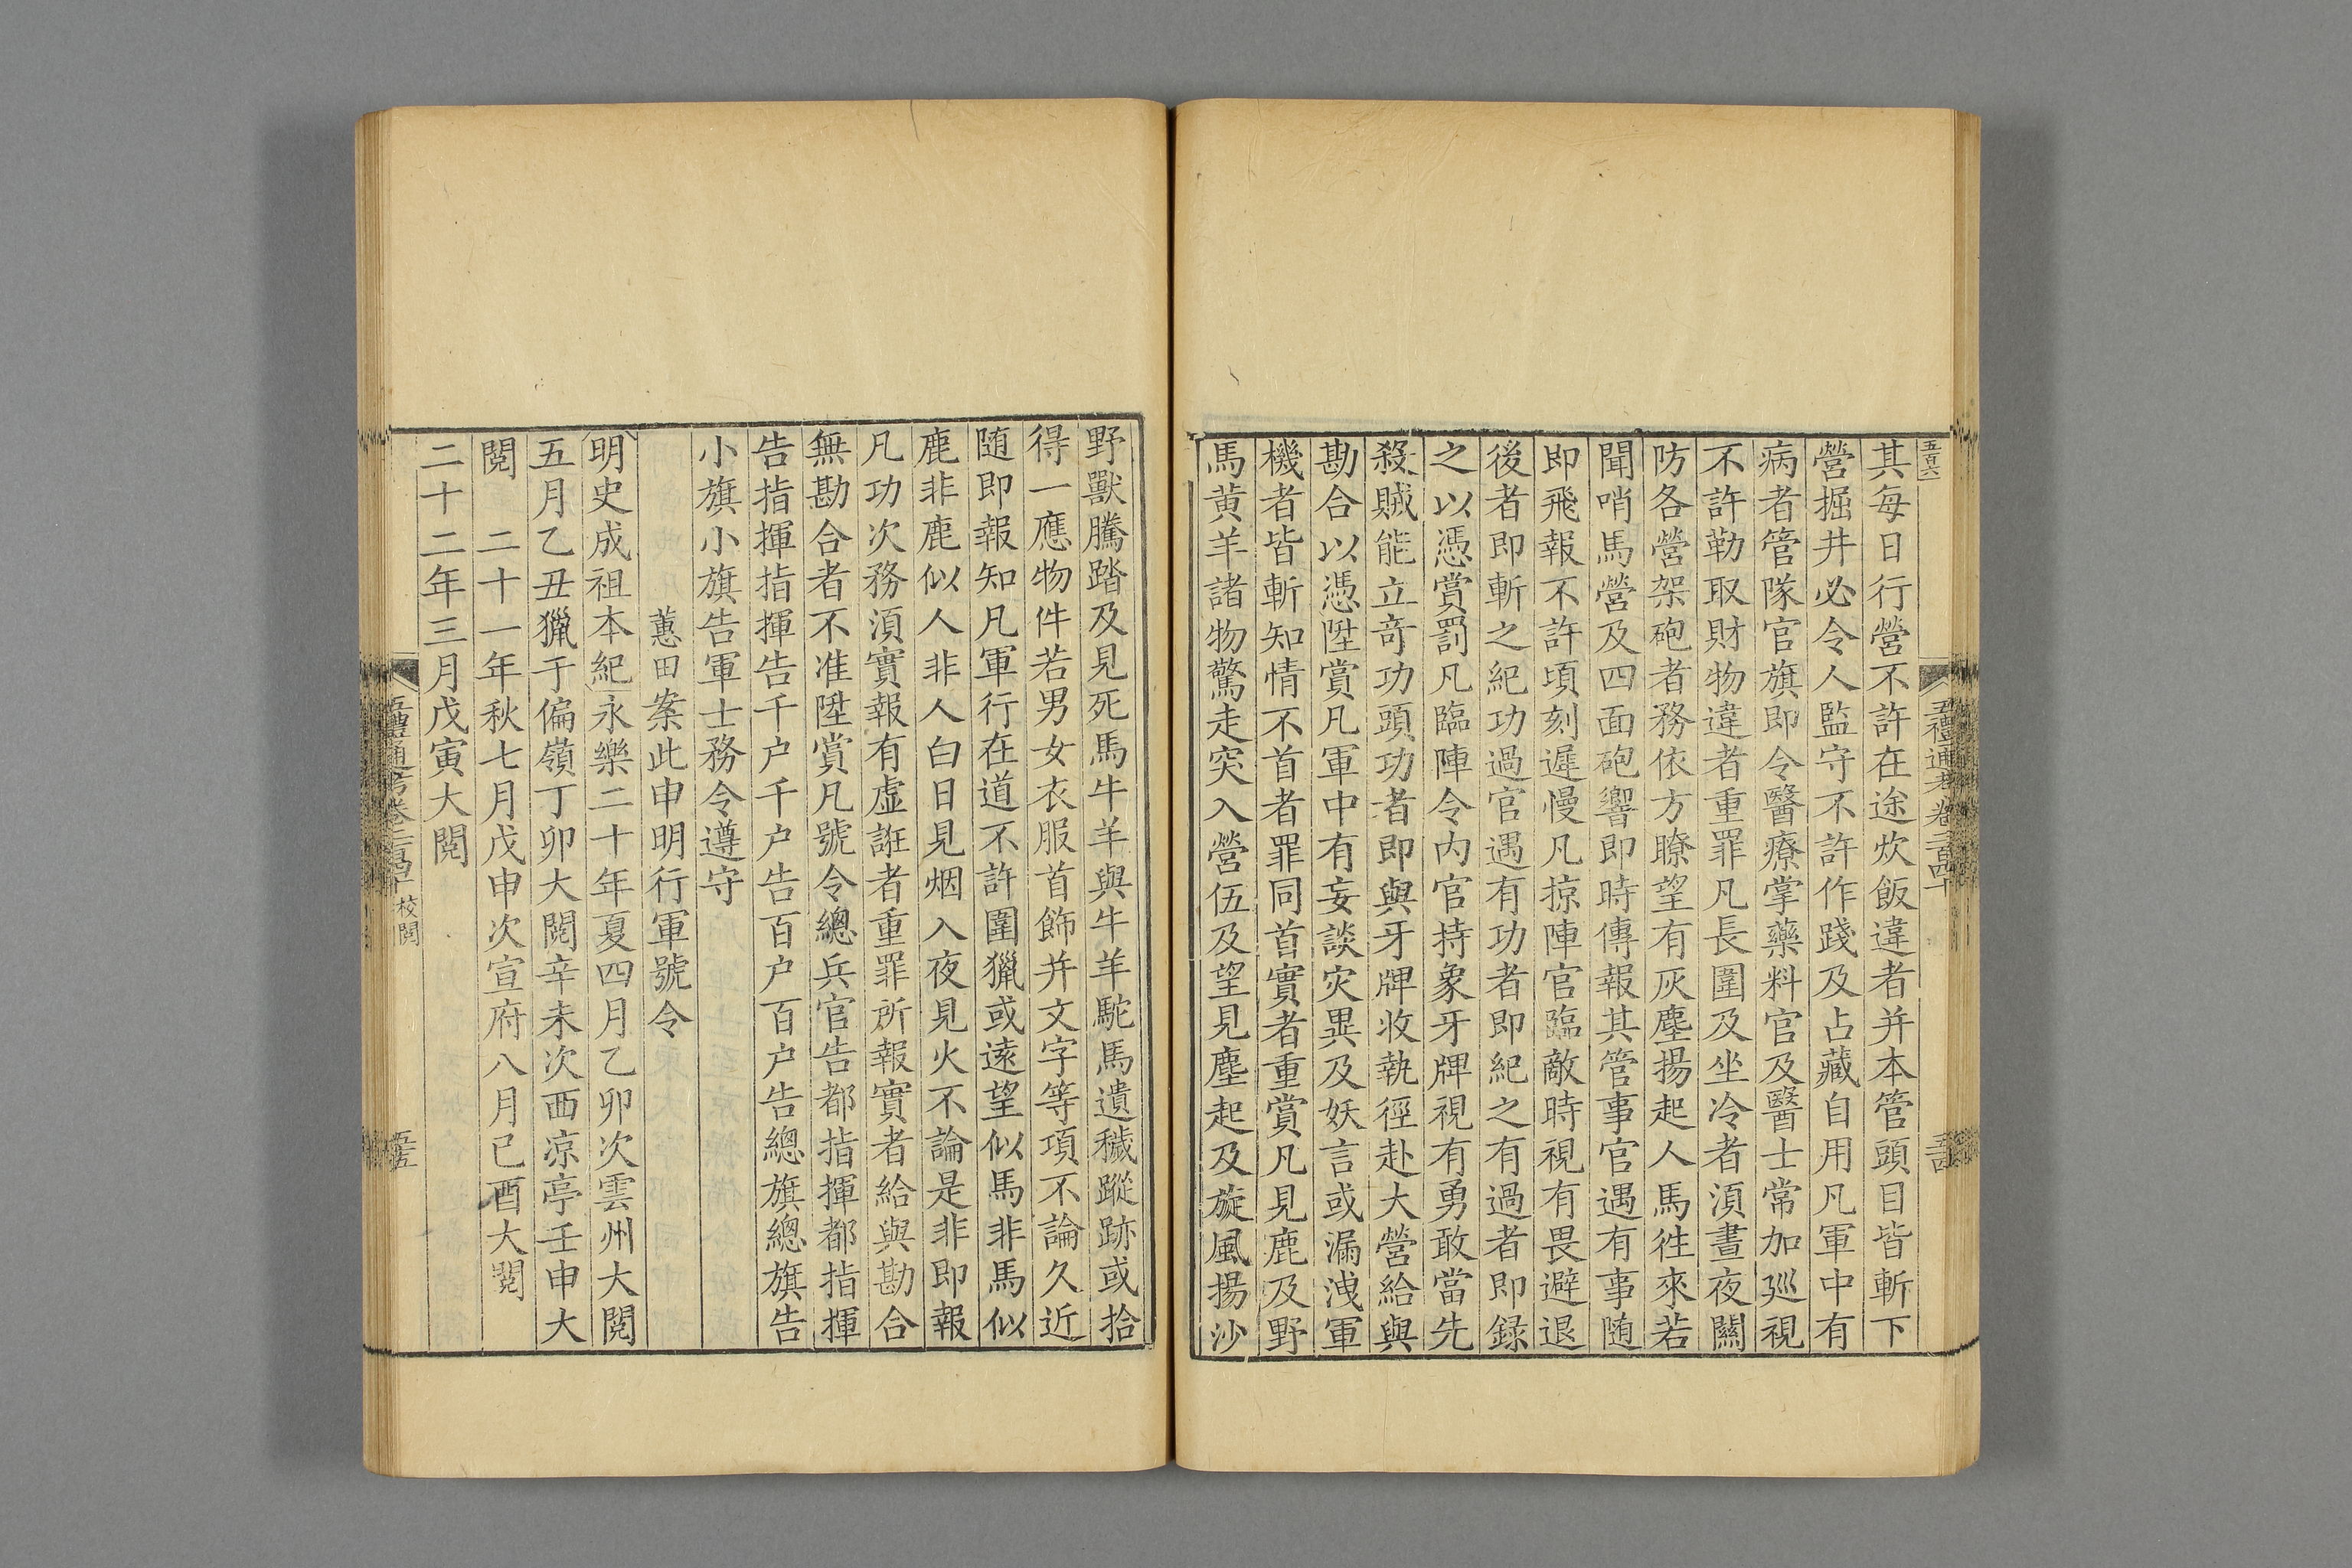 五百六
五禮通考卷二百四十
其每日行營不許在途炊飯違者并本管頭目皆斬下
營掘井必令人監守不許作踐及占藏自用凡軍中有
病者管隊官旗即令醫療掌藥料官及醫士常加廵視
不許勒取財物違者重罪凡長圍及坐冷者湏晝夜關
防各營架砲者務依方瞭望有灰塵揚起人馬徃來若
聞哨馬營及四面砲響即時傳報其管事官遇有事随
即飛報不許頃刻遲慢凡掠陣官臨敵時視有畏避退
後者即斬之紀功過官遇有功者即紀之有過者即録
之以憑賞罰凡臨陣令内官持象牙牌視有勇敢當先
殺賊能立竒功頭功者即與牙牌收執徑赴大營給與
勘合以憑陞賞凡軍中有妄談灾異及妖言或漏洩軍
機者皆斬知情不首者罪同首實者重賞凡見鹿及野
馬黄羊諸物驚走突入營伍及望見塵起及旋風揚沙
野獸騰踏及見死馬牛羊與牛羊駝馬遺穢蹤跡或拾
得一應物件若男女衣服首飾并文字等項不論久近
随即報知凡軍行在道不許圍獵或逺望似馬非馬似
鹿非鹿似人非人白日見烟入夜見火不論是非即報
凡功次務湏實報有虚誑者重罪所報實者給與勘合
無勘合者不准陞賞凡號令總兵官告都指揮都指揮
告指揮指揮告千户千户告百户百户告總旗總旗告
小旗小旗告軍士務令遵守
蕙田案此申明行軍號令
明史成祖本紀永樂二十年夏四月乙卯次雲州大閱
五月乙丑獵于偏嶺丁卯大閱辛未次西凉亭壬申大
閱　二十一年秋七月戊申次宣府八月已酉大閱
二十二年三月戊寅大閱
五禮通考卷二百四十　校閱
五五